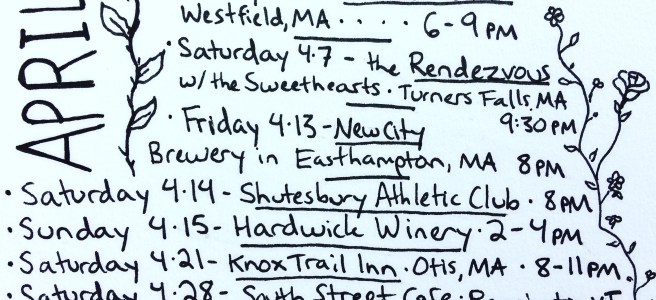 APRIL
Westfield, MA . . . . 6-9 PM
• Saturday 4.7 - the Rendezvous
w/ the Sweethearts • Turners Falls, MA
9:30 PM
• Friday 4.13 - New City
Brewery in Easthampton, MA 8 PM
• Saturday 4.14 - Shutesbury Athletic Club • 8 PM
• Sunday 4.15 - Hardwick Winery • 2-4 PM
• Saturday 4.21 - Knox Trail Inn • Otis, MA • 8-11 PM
• Saturday 4.28 - South Street Cafe •